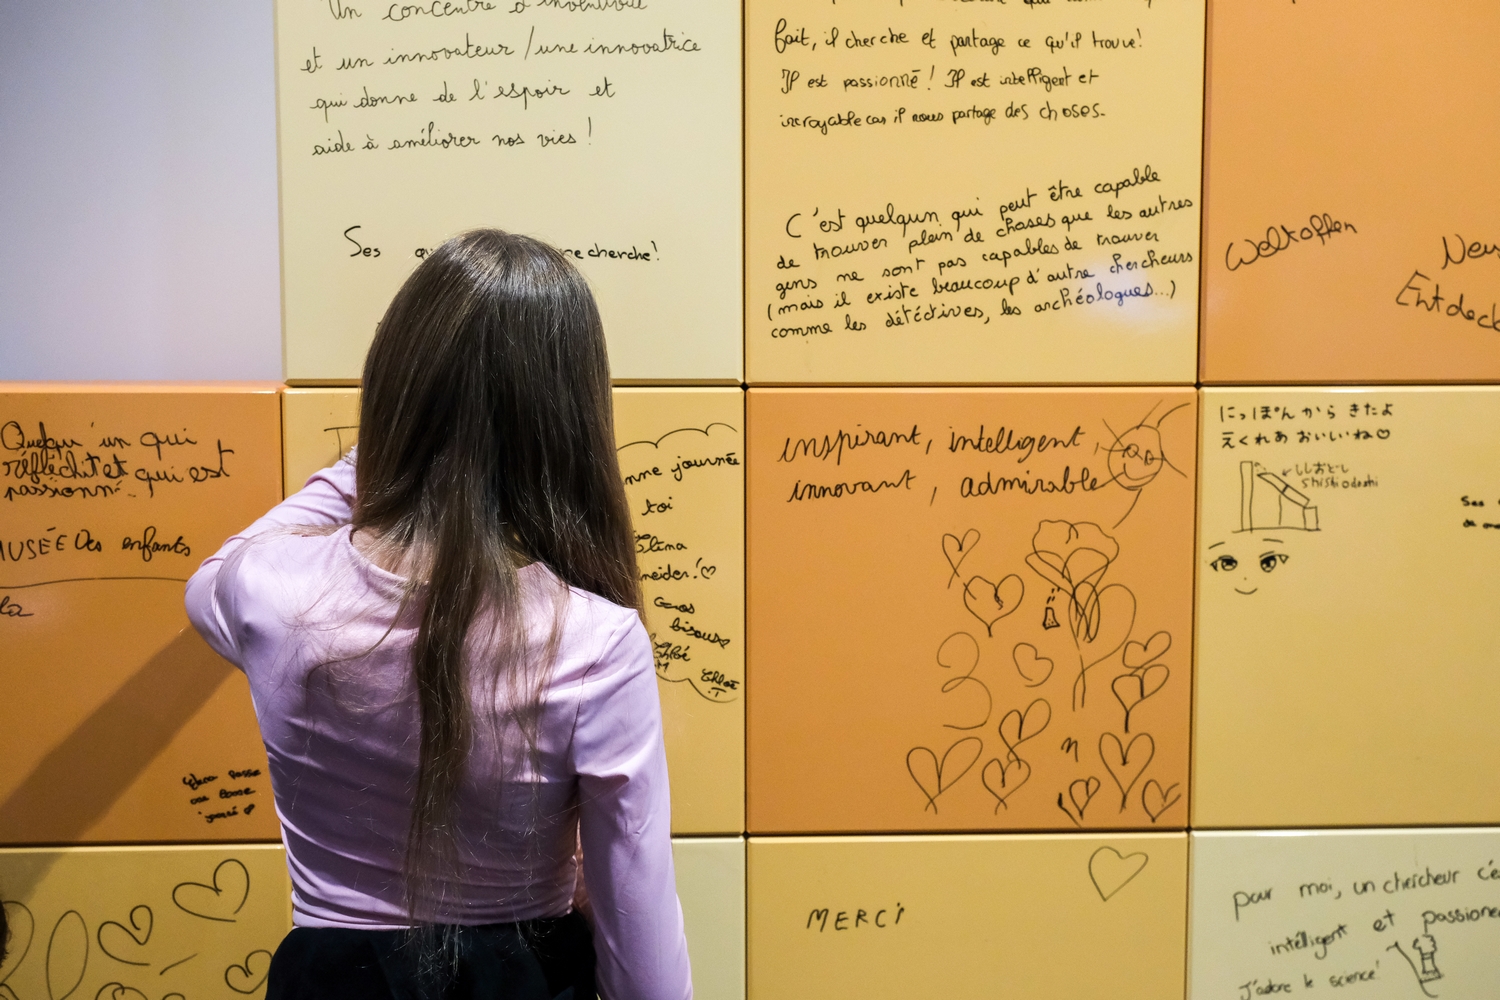 Un concentré d'inventivité
et un innovateur / une innovatrice
qui donne de l'espoir et
aide à améliorer nos vies !
Ses cherche!
fait, il cherche et partage ce qu'il trouve!
Il est passionné ! Il est intelligent et
incroyable car il nous partage des choses.
C'est quelqun qui peut être capable
de trouver plein de choses que les autres
gens ne sont pas capables de trouver
(mais il existe beaucoup d'autre chercheurs
comme les détéctives, les archéologues...)
Weltoffen
Neu
Entdeck
Quelqu'un qui
réfléchit et qui est
passionné.
MUSÉE Des enfants
la
nne journée
toi
neider! ♡
Gros
bisous
Chloé
inspirant, intelligent,
innovant, admirable
にっぽんから きたよ
えくれあ おいしいね♡
ししおどし
Shishiodoshi
MERCI
pour moi, un chercheur c'es
intélligent et passionné
J'adore le science!